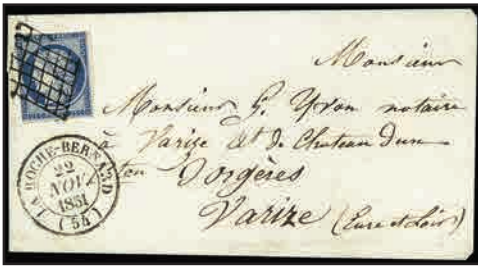 Monsieur
Monsieur G. Yvon notaire
à Varize Ct de Chateau dun
Orgères
Varize (Eure et Loir)
LA ROCHE-BERNARD
22
NOV
1851
(54)